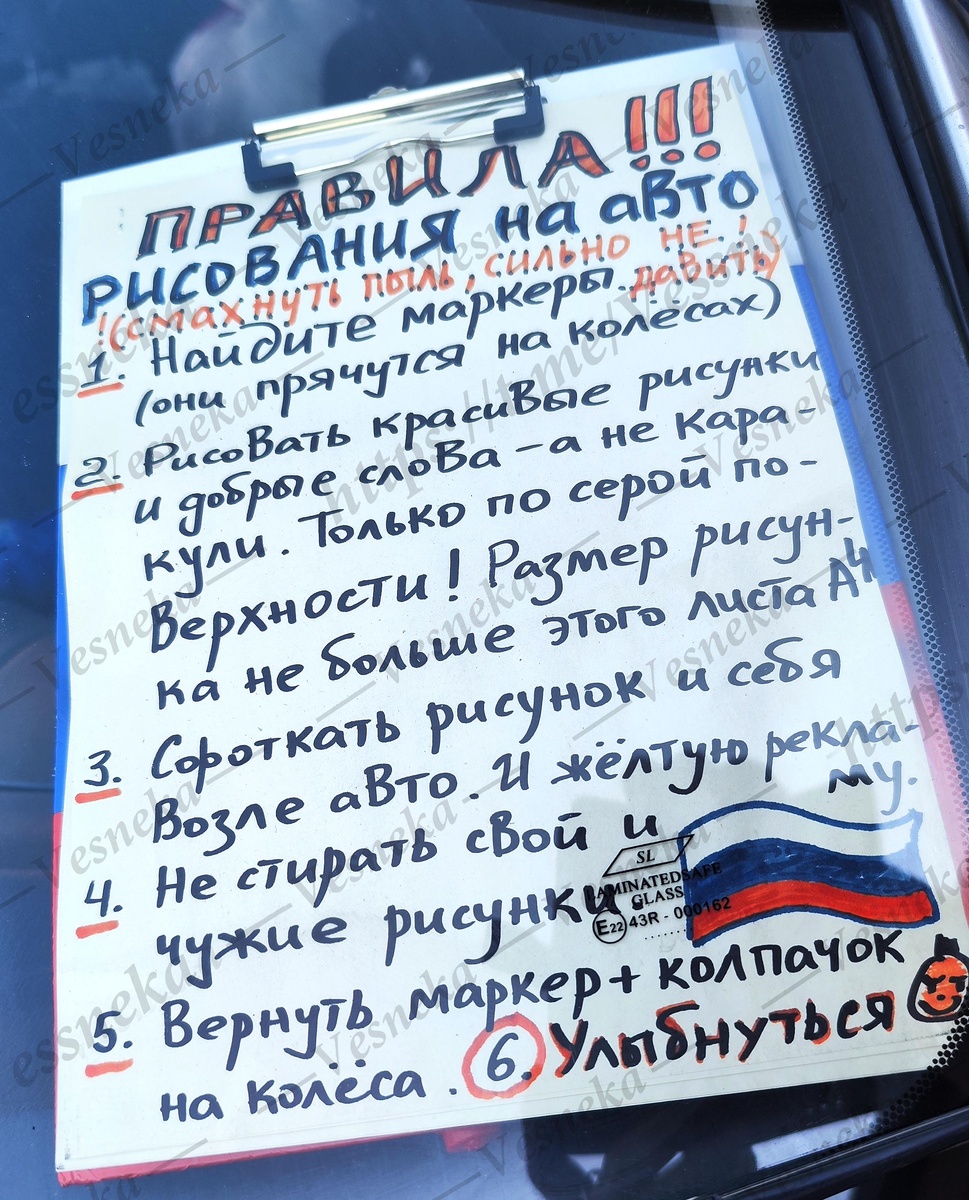 ПРАВИЛА!!!
РИСОВАНИЯ на авто
!(смахнуть пыль, сильно не!
давить)
1. Найдите маркеры.
(они прячутся на колёсах)
2. Рисовать красивые рисунки
и добрые слова – а не кара-
кули. Только по серой по-
верхности! Размер рисун-
ка не больше этого листа А4
3. Сфоткать рисунок и себя
возле авто. И жёлтую рекла-
му.
4. Не стирать свой и
чужие рисунки.
SL
LAMINATEDSAFE
GLASS
E22 43R - 000162
5. Вернуть маркер + колпачок
на колёса. 6. Улыбнуться
Vesneka
https://t.me/Vesneka